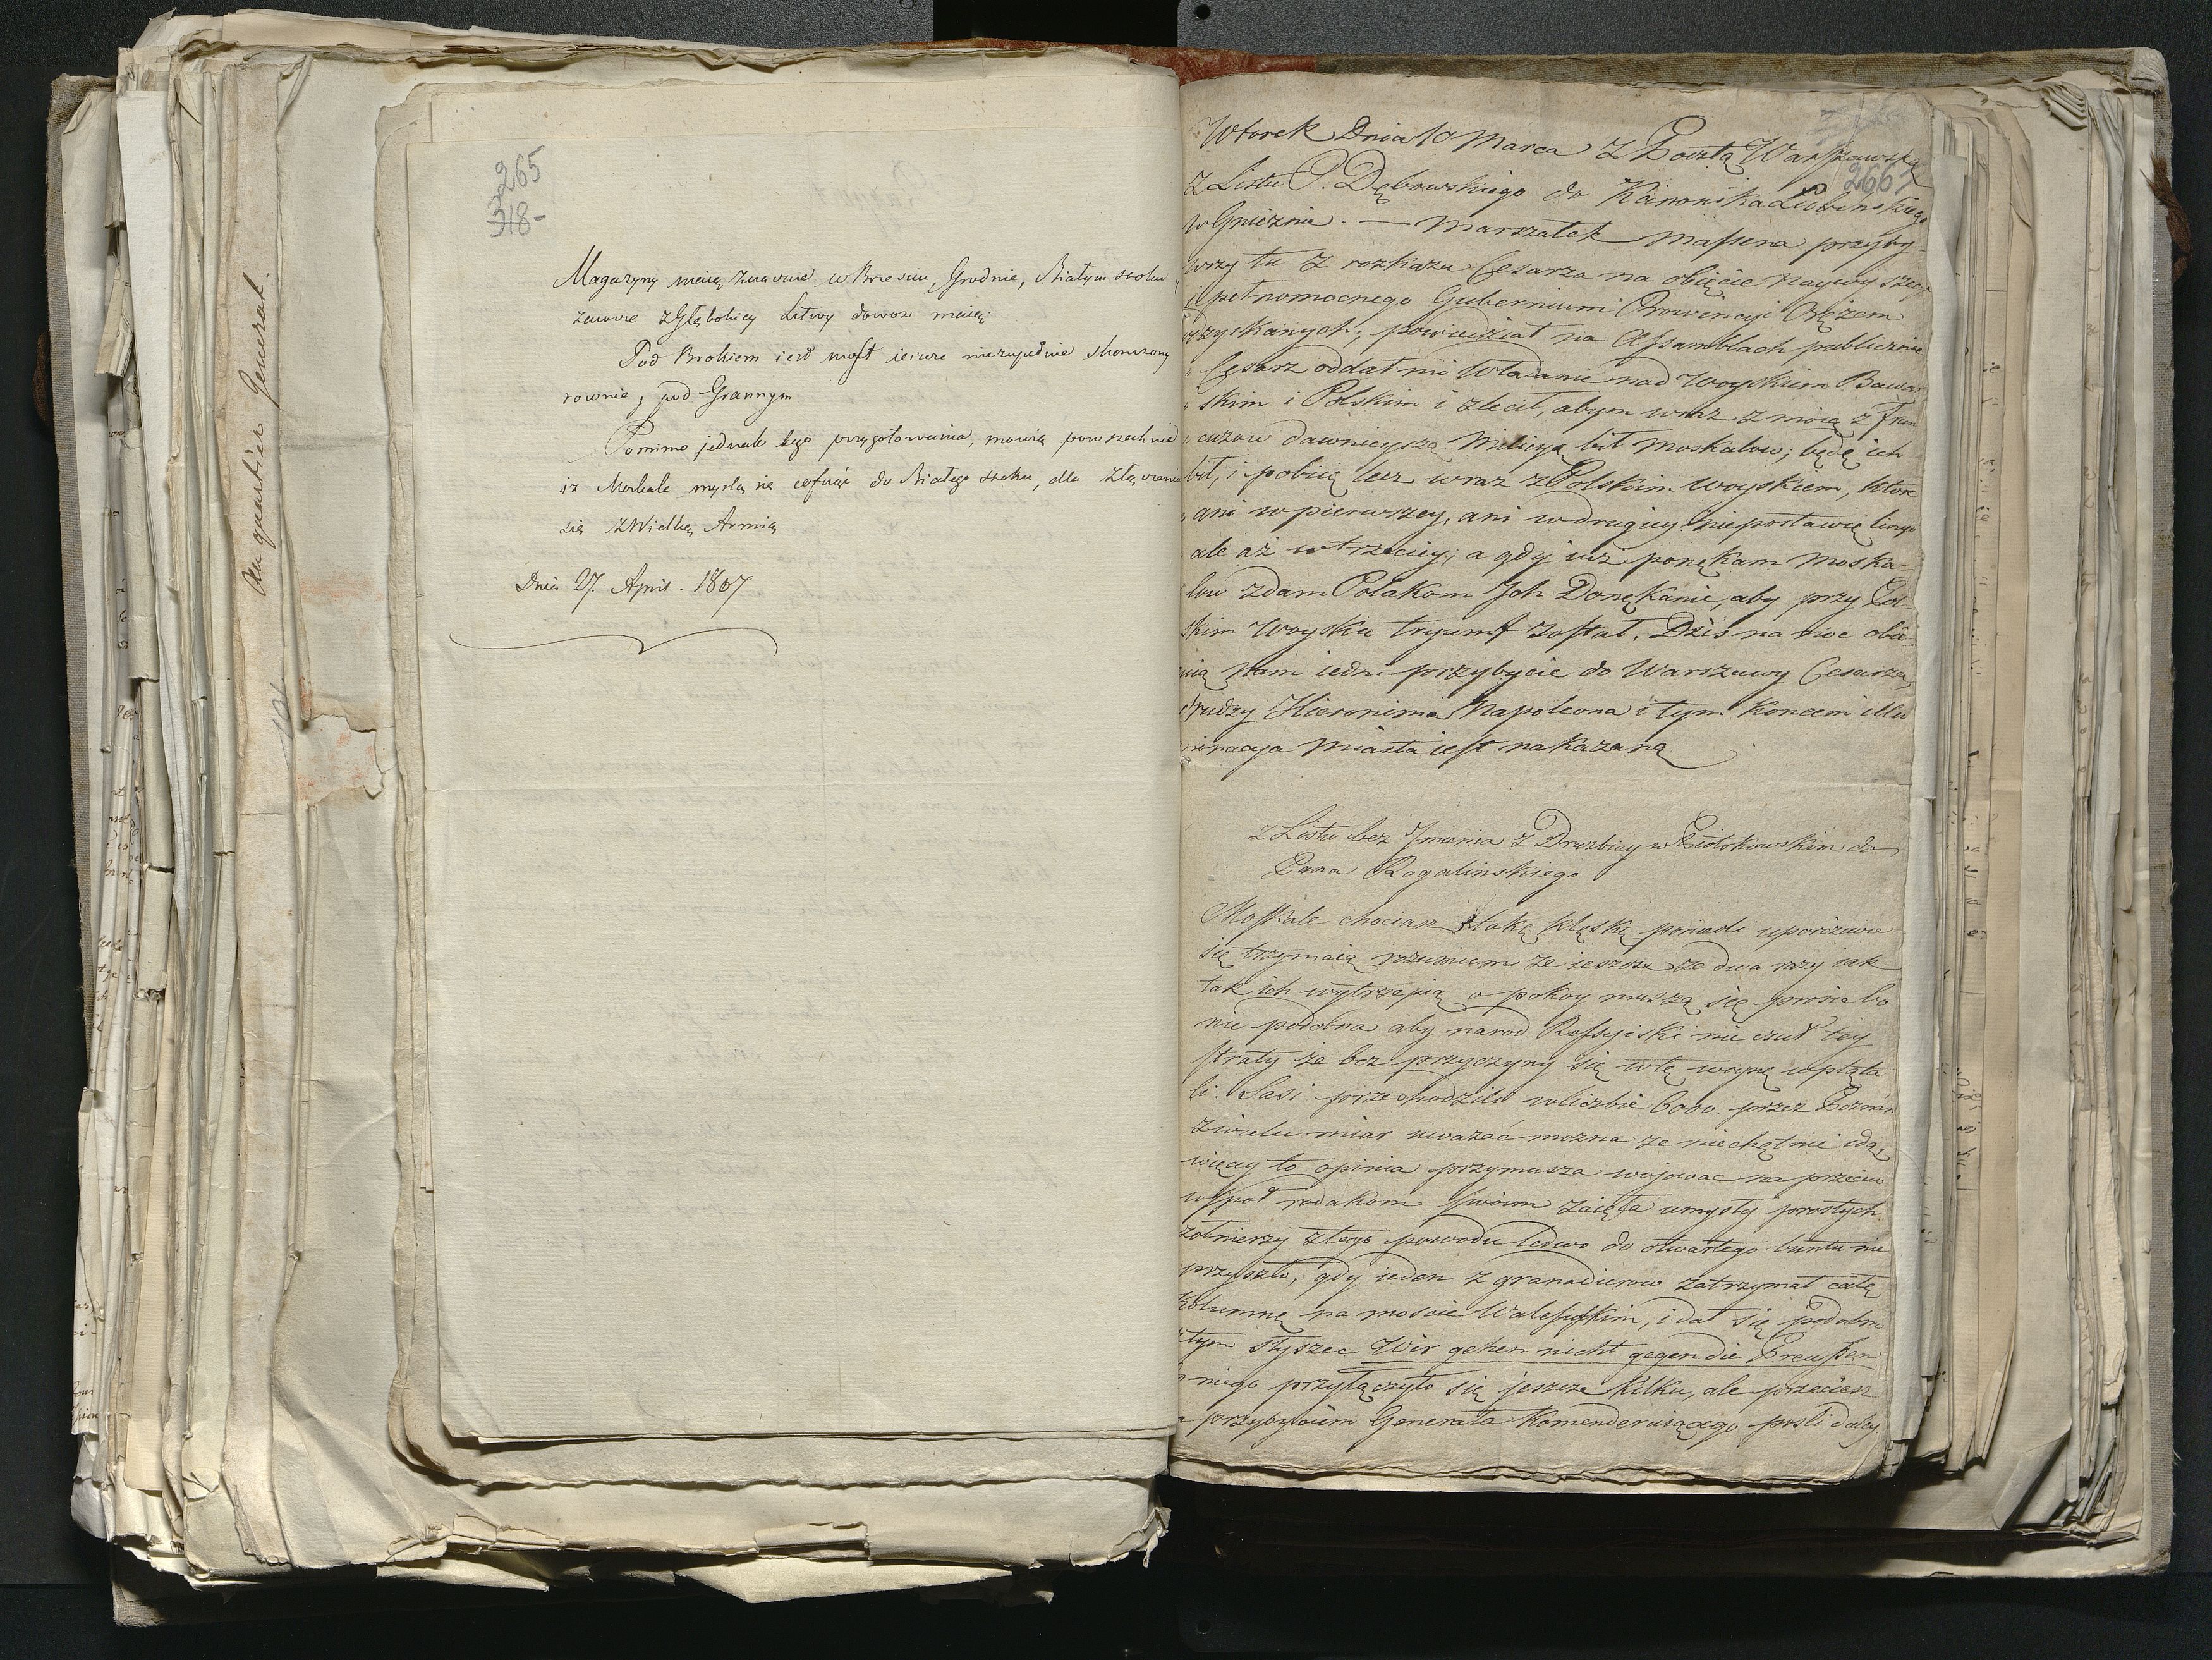 Au quartier General.
265
318-
Magazyny maią znaczne w Brzesciu, Grodnie, Białym stoku
zawsze z Głębokiey Litwy dowoz maią
Pod Brokiem iest most ieszcze niezupełnie skonczony
rownie, pod Grannym
Pomimo jednak tego przygotowania, mowią powszechnie
iz Moskale myslą się cofnąć do Białego stoku, dla złączenia
się z Wielką Armią
Dnia 27. April. 1807
Wtorek Dnia 10 Marca z Pocztą Warszawską
266
z Listu P. Dębowskiego do Kanonika Lubinskiego
w Gnieznie. — Marszałek Massena przyby-
wszy tu z rozkazu Cesarza na obięcie naywyszego
i pełnomocnego Gubernium Prowincyi Orężem
zyskanych; powiedział na Assamblach publicznie
Cesarz oddał mi Władanie nad Woyskiem Bawar
skim i Polskim i zlecił, abym wraz z moią z Fran
cuzow dawnieyszą Milicyą bił Moskalow; będę ich
bił, i pobiię lecz wraz z Polskim woyskiem, ktore
ani w pierwszey, ani w drugiey niepostawię lingi
ale aż w trzeciey; a gdy iuż ponękam Moska-
low zdam Polakom Ich Donękanie, aby przy Pol-
skim Woysku tryumf został. Dziś na noc obie
nam iedni przybycie do Warszawy Cesarza,
drudzy Hieronima Napoleona i tym koncem illu
minacya Miasta iest nakazaną
z Listu bez Imienia z Druzbicy w Piotrkowskim do
Pana Rogalinskiego
Moskale chociaz taką klęskę poniesli uporczywie
się trzymaią rozumiem ze ieszcze ze dwa razy iak
tak ich wytrzepią o pokoy muszą się prosic bo
nie podobna aby narod Rossyiski nie czuł tey
straty że bez przyczyny się w tę woynę wpląta
li. Sasi przechodzili w liczbie 6000. przez Poznań
z wielu miar uwazać mozna ze niechętnie idą,
więcey to opinia przymusza wojowac na przeciw
wspoł rodakom swoim zaięta umysły prostych
żołnierzy z tego powodu ledwo do otwartego buntu nie
przyszło, gdy ieden z granadierow zatrzymał całą
kolumnę na moscie Walesyskim, i dał się podobno
z tym słyszec Wir gehen nicht gegen die Preußen
niego przyłączyło się jeszcze kilku, ale przeciesz
przybyciem Generała Komenderuiącego poszli daley